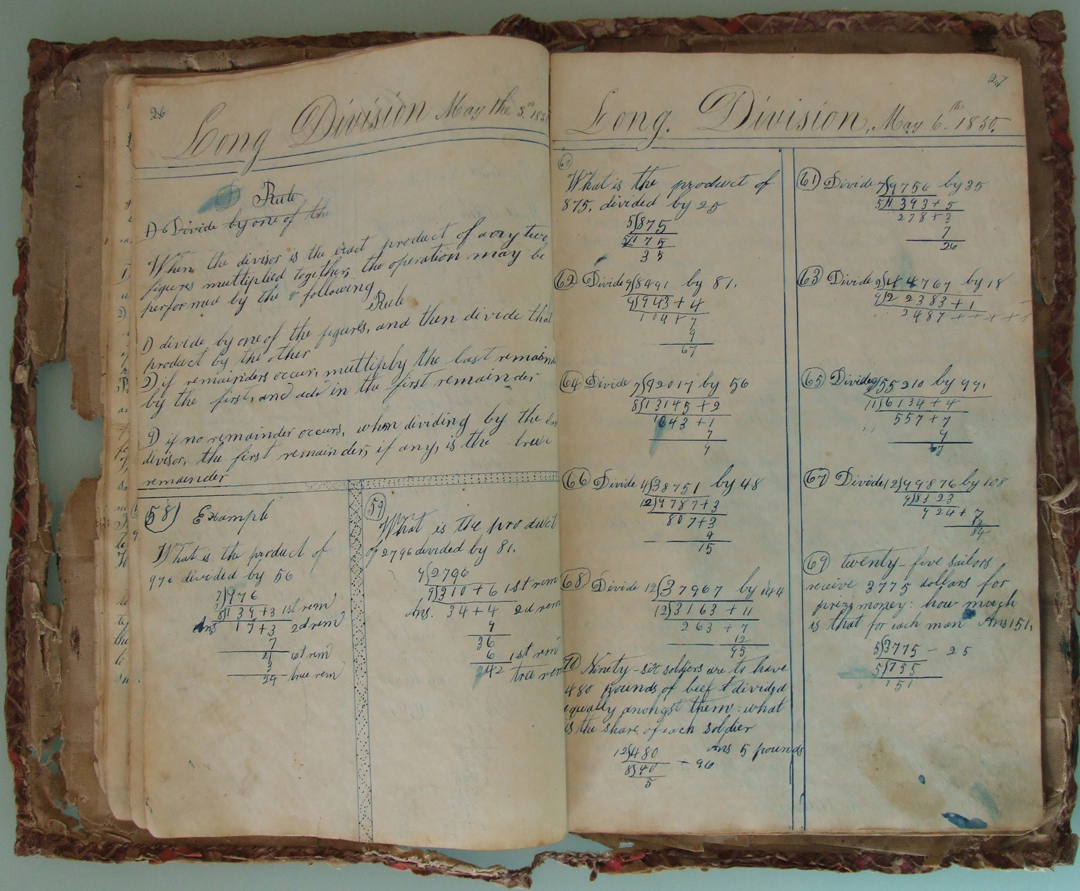 26
Long Division May the 5th 185
Rule
1) Divide by one of the
When the divisor is the exact product of any two
figures multiplied together, the operation may be
performed by the following
Rule
1) divide by one of the figures, and then divide that
product by the other
2) if remainders occur, multiply by the last remain
by the first, and add in the first remainder
if no remainder occurs, when dividing by the
divisor, the first remainder, if any, is the true
remainder
58) Example
What is the product of
976 divided by 56
7)976
8)139+3 1st rem
Ans 17+3 2d rem
7
21 1st rem
3
24 true rem
59
What is the product
of 2796 divided by 81.
9)2796
9)310+6 1st rem
Ans. 34+4 2d rem
9
36
6 1st rem
242 true rem
27
Long. Division, May 6th 1850.
What is the product of
875, divided by 25
5)875
5)175
35
61) Divide 7)9756 by 35
5)1393+5
278+3
7
26
62) Divide 9)8491 by 81.
9)943+4
104+7
9
67
63) Divide 2)44767 by 18
9)22383+1
2487
64) Divide 7)92017 by 56
8)13145+2
1643+1
7
9
65) Divide 9)55210 by 99.
11)6134+4
557+7
9
67
66) Divide 4)38751 by 48
12)9787+3
807+3
4
15
67) Divide 12)99876 by 108
9)8323
924+7
12
84
68) Divide 12)37967 by 144
12)3163+11
263+7
12
95
69) twenty-five sailors
receive 3775 dollars for
prize money: how much
is that for each man Ans 151.
5)3775 - 25
5)755
151
70 Ninety-six soldiers are to have
480 pounds of beef divided
equally amongst them: what
is the share of each soldier
Ans 5 pounds
12)480
8)40 - 96
5